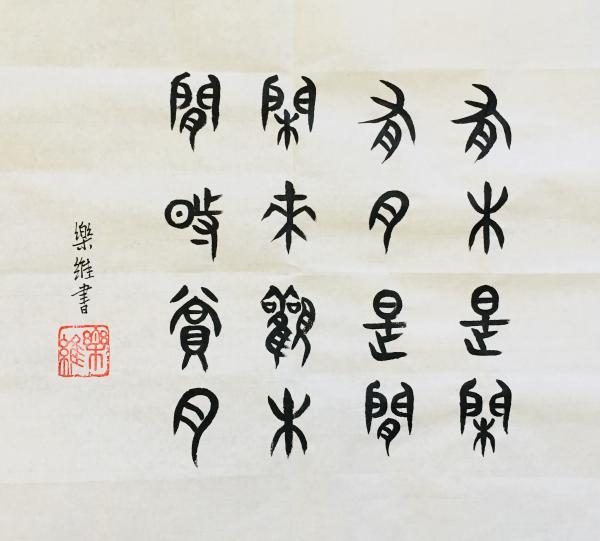 有木是閑
有月是閒
閑來觀木
閒時賞月
樂維書
樂維